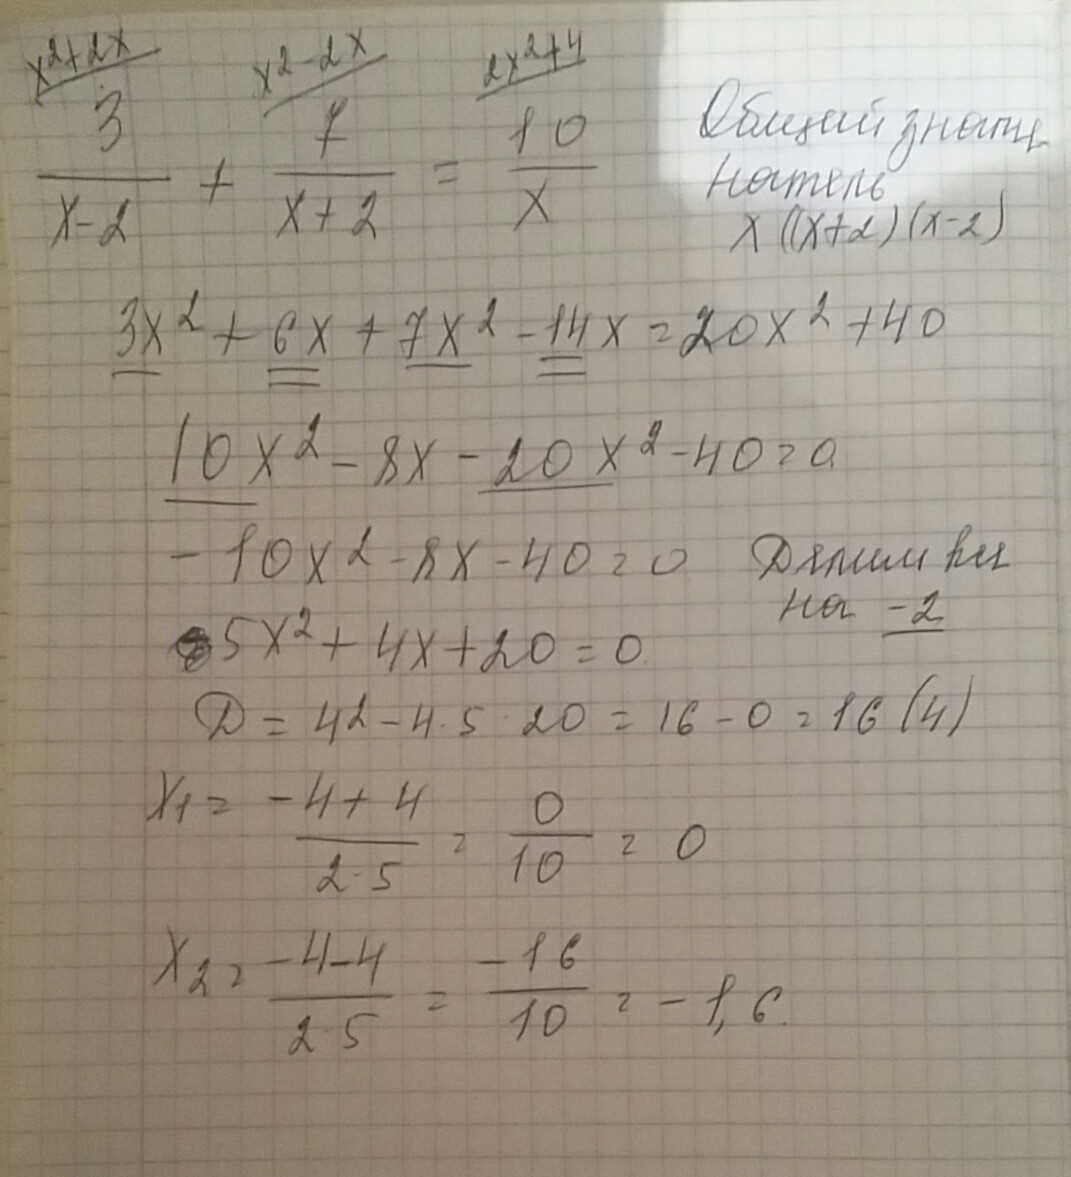 x²+2x x²-2x 2x²+4
3/(x-2) + 7/(x+2) = 10/x
Общий знаме
натель
x((x+2)(x-2)
3x² + 6x + 7x² - 14x = 20x² + 40
10x² - 8x - 20x² - 40 = 0
-10x² - 8x - 40 = 0
Делим все
на -2
5x² + 4x + 20 = 0
D = 4² - 4·5·20 = 16 - 0 = 16 (4)
x₁ = (-4+4)/(2·5) = 0/10 = 0
x₂ = (-4-4)/(2·5) = -16/10 = -1,6.